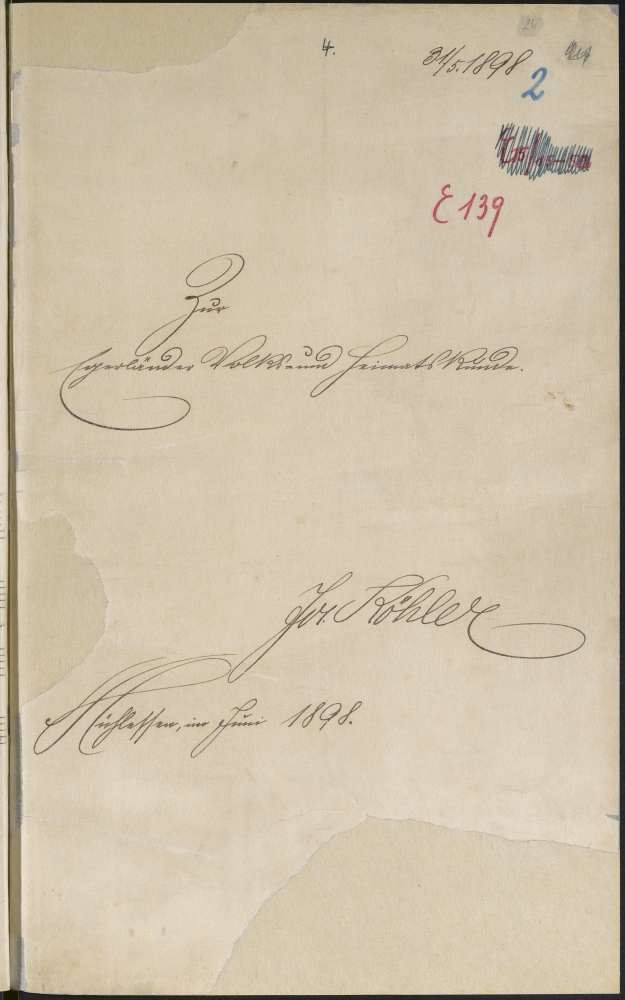 4.
31/5.1898
2
E 139
Zur
Egerländer Volks- und Heimatskunde.
Jos. Köhler
Mühlessen, im Juni 1898.